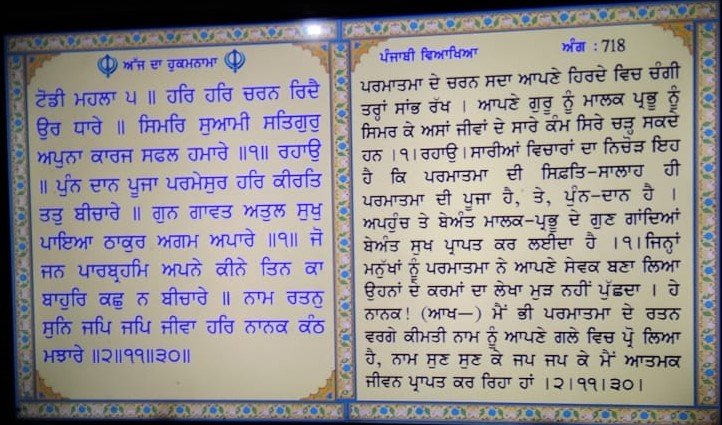 ਅੱਜ ਦਾ ਹੁਕਮਨਾਮਾ
ਟੋਡੀ ਮਹਲਾ ੫ ॥ ਹਰਿ ਹਰਿ ਚਰਨ ਰਿਦੈ
ਉਰ ਧਾਰੇ ॥ ਸਿਮਰਿ ਸੁਆਮੀ ਸਤਿਗੁਰੁ
ਅਪੁਨਾ ਕਾਰਜ ਸਫਲ ਹਮਾਰੇ ॥੧॥ ਰਹਾਉ
॥ ਪੁੰਨ ਦਾਨ ਪੂਜਾ ਪਰਮੇਸੁਰ ਹਰਿ ਕੀਰਤਿ
ਤਤੁ ਬੀਚਾਰੇ ॥ ਗੁਨ ਗਾਵਤ ਅਤੁਲ ਸੁਖੁ
ਪਾਇਆ ਠਾਕੁਰ ਅਗਮ ਅਪਾਰੇ ॥੧॥ ਜੋ
ਜਨ ਪਾਰਬ੍ਰਹਮਿ ਅਪਨੇ ਕੀਨੇ ਤਿਨ ਕਾ
ਬਾਹੁਰਿ ਕਛੁ ਨ ਬੀਚਾਰੇ ॥ ਨਾਮ ਰਤਨੁ
ਸੁਨਿ ਜਪਿ ਜਪਿ ਜੀਵਾ ਹਰਿ ਨਾਨਕ ਕੰਠ
ਮਝਾਰੇ ॥੨॥੧੧॥੩੦॥
ਪੰਜਾਬੀ ਵਿਆਖਿਆ ਅੰਗ : 718
ਪਰਮਾਤਮਾ ਦੇ ਚਰਨ ਸਦਾ ਆਪਣੇ ਹਿਰਦੇ ਵਿਚ ਚੰਗੀ
ਤਰ੍ਹਾਂ ਸਾਂਭ ਰੱਖ । ਆਪਣੇ ਗੁਰੂ ਨੂੰ ਮਾਲਕ ਪ੍ਰਭੂ ਨੂੰ
ਸਿਮਰ ਕੇ ਅਸਾਂ ਜੀਵਾਂ ਦੇ ਸਾਰੇ ਕੰਮ ਸਿਰੇ ਚੜ੍ਹ ਸਕਦੇ
ਹਨ ।੧।ਰਹਾਉ।ਸਾਰੀਆਂ ਵਿਚਾਰਾਂ ਦਾ ਨਿਚੋੜ ਇਹ
ਹੈ ਕਿ ਪਰਮਾਤਮਾ ਦੀ ਸਿਫ਼ਤਿ-ਸਾਲਾਹ ਹੀ
ਪਰਮਾਤਮਾ ਦੀ ਪੂਜਾ ਹੈ, ਤੇ, ਪੁੰਨ-ਦਾਨ ਹੈ ।
ਅਪਹੁੰਚ ਤੇ ਬੇਅੰਤ ਮਾਲਕ-ਪ੍ਰਭੂ ਦੇ ਗੁਣ ਗਾਂਦਿਆਂ
ਬੇਅੰਤ ਸੁਖ ਪ੍ਰਾਪਤ ਕਰ ਲਈਦਾ ਹੈ ।੧।ਜਿਨ੍ਹਾਂ
ਮਨੁੱਖਾਂ ਨੂੰ ਪਰਮਾਤਮਾ ਨੇ ਆਪਣੇ ਸੇਵਕ ਬਣਾ ਲਿਆ
ਉਹਨਾਂ ਦੇ ਕਰਮਾਂ ਦਾ ਲੇਖਾ ਮੁੜ ਨਹੀਂ ਪੁੱਛਦਾ । ਹੇ
ਨਾਨਕ! (ਆਖ—) ਮੈਂ ਭੀ ਪਰਮਾਤਮਾ ਦੇ ਰਤਨ
ਵਰਗੇ ਕੀਮਤੀ ਨਾਮ ਨੂੰ ਆਪਣੇ ਗਲੇ ਵਿਚ ਪ੍ਰੋ ਲਿਆ
ਹੈ, ਨਾਮ ਸੁਣ ਸੁਣ ਕੇ ਜਪ ਜਪ ਕੇ ਮੈਂ ਆਤਮਕ
ਜੀਵਨ ਪ੍ਰਾਪਤ ਕਰ ਰਿਹਾ ਹਾਂ ।੨।੧੧।੩੦।